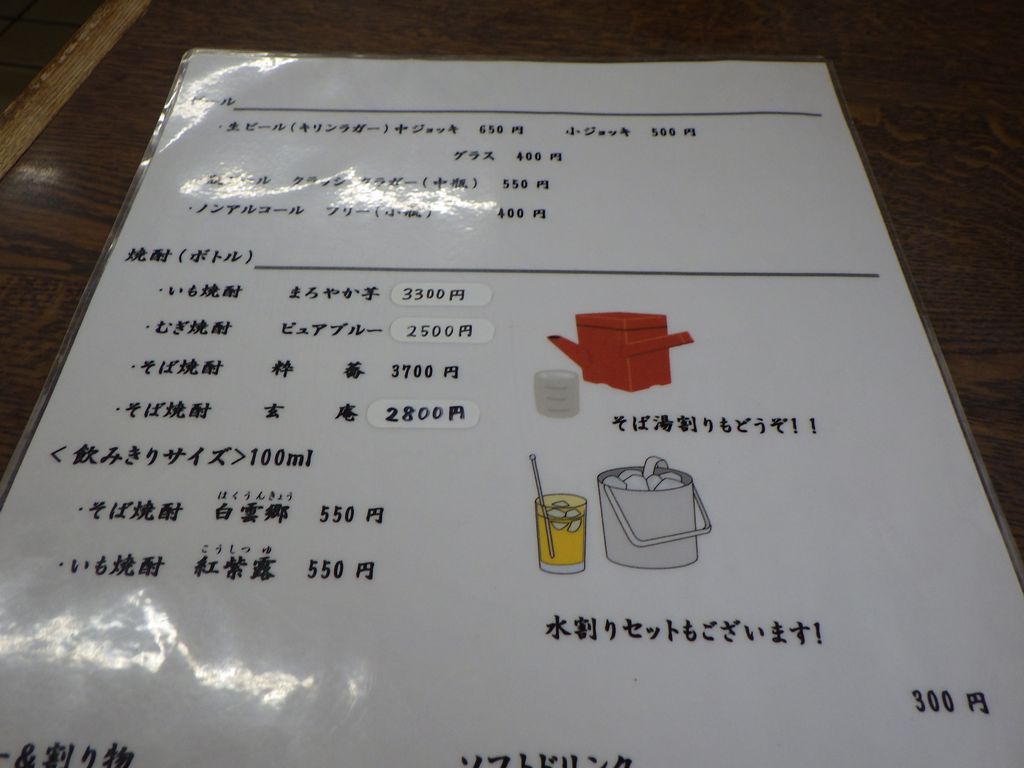 ビール
・生ビール(キリンラガー)中ジョッキ 650円 小ジョッキ 500円
グラス 400円
ビール クラシックラガー(中瓶) 550円
・ノンアルコール フリー(小瓶) 400円
焼酎(ボトル)
・いも焼酎 まろやか芋 3300円
・むぎ焼酎 ピュアブルー 2500円
・そば焼酎 粋蕎 3700円
・そば焼酎 玄庵 2800円
そば湯割りもどうぞ!!
<飲みきりサイズ>100ml
はくうんきょう
・そば焼酎 白雲郷 550円
こうしつゆ
・いも焼酎 紅紫露 550円
水割りセットもございます!
300円
ー&割り物 ソフトドリンク